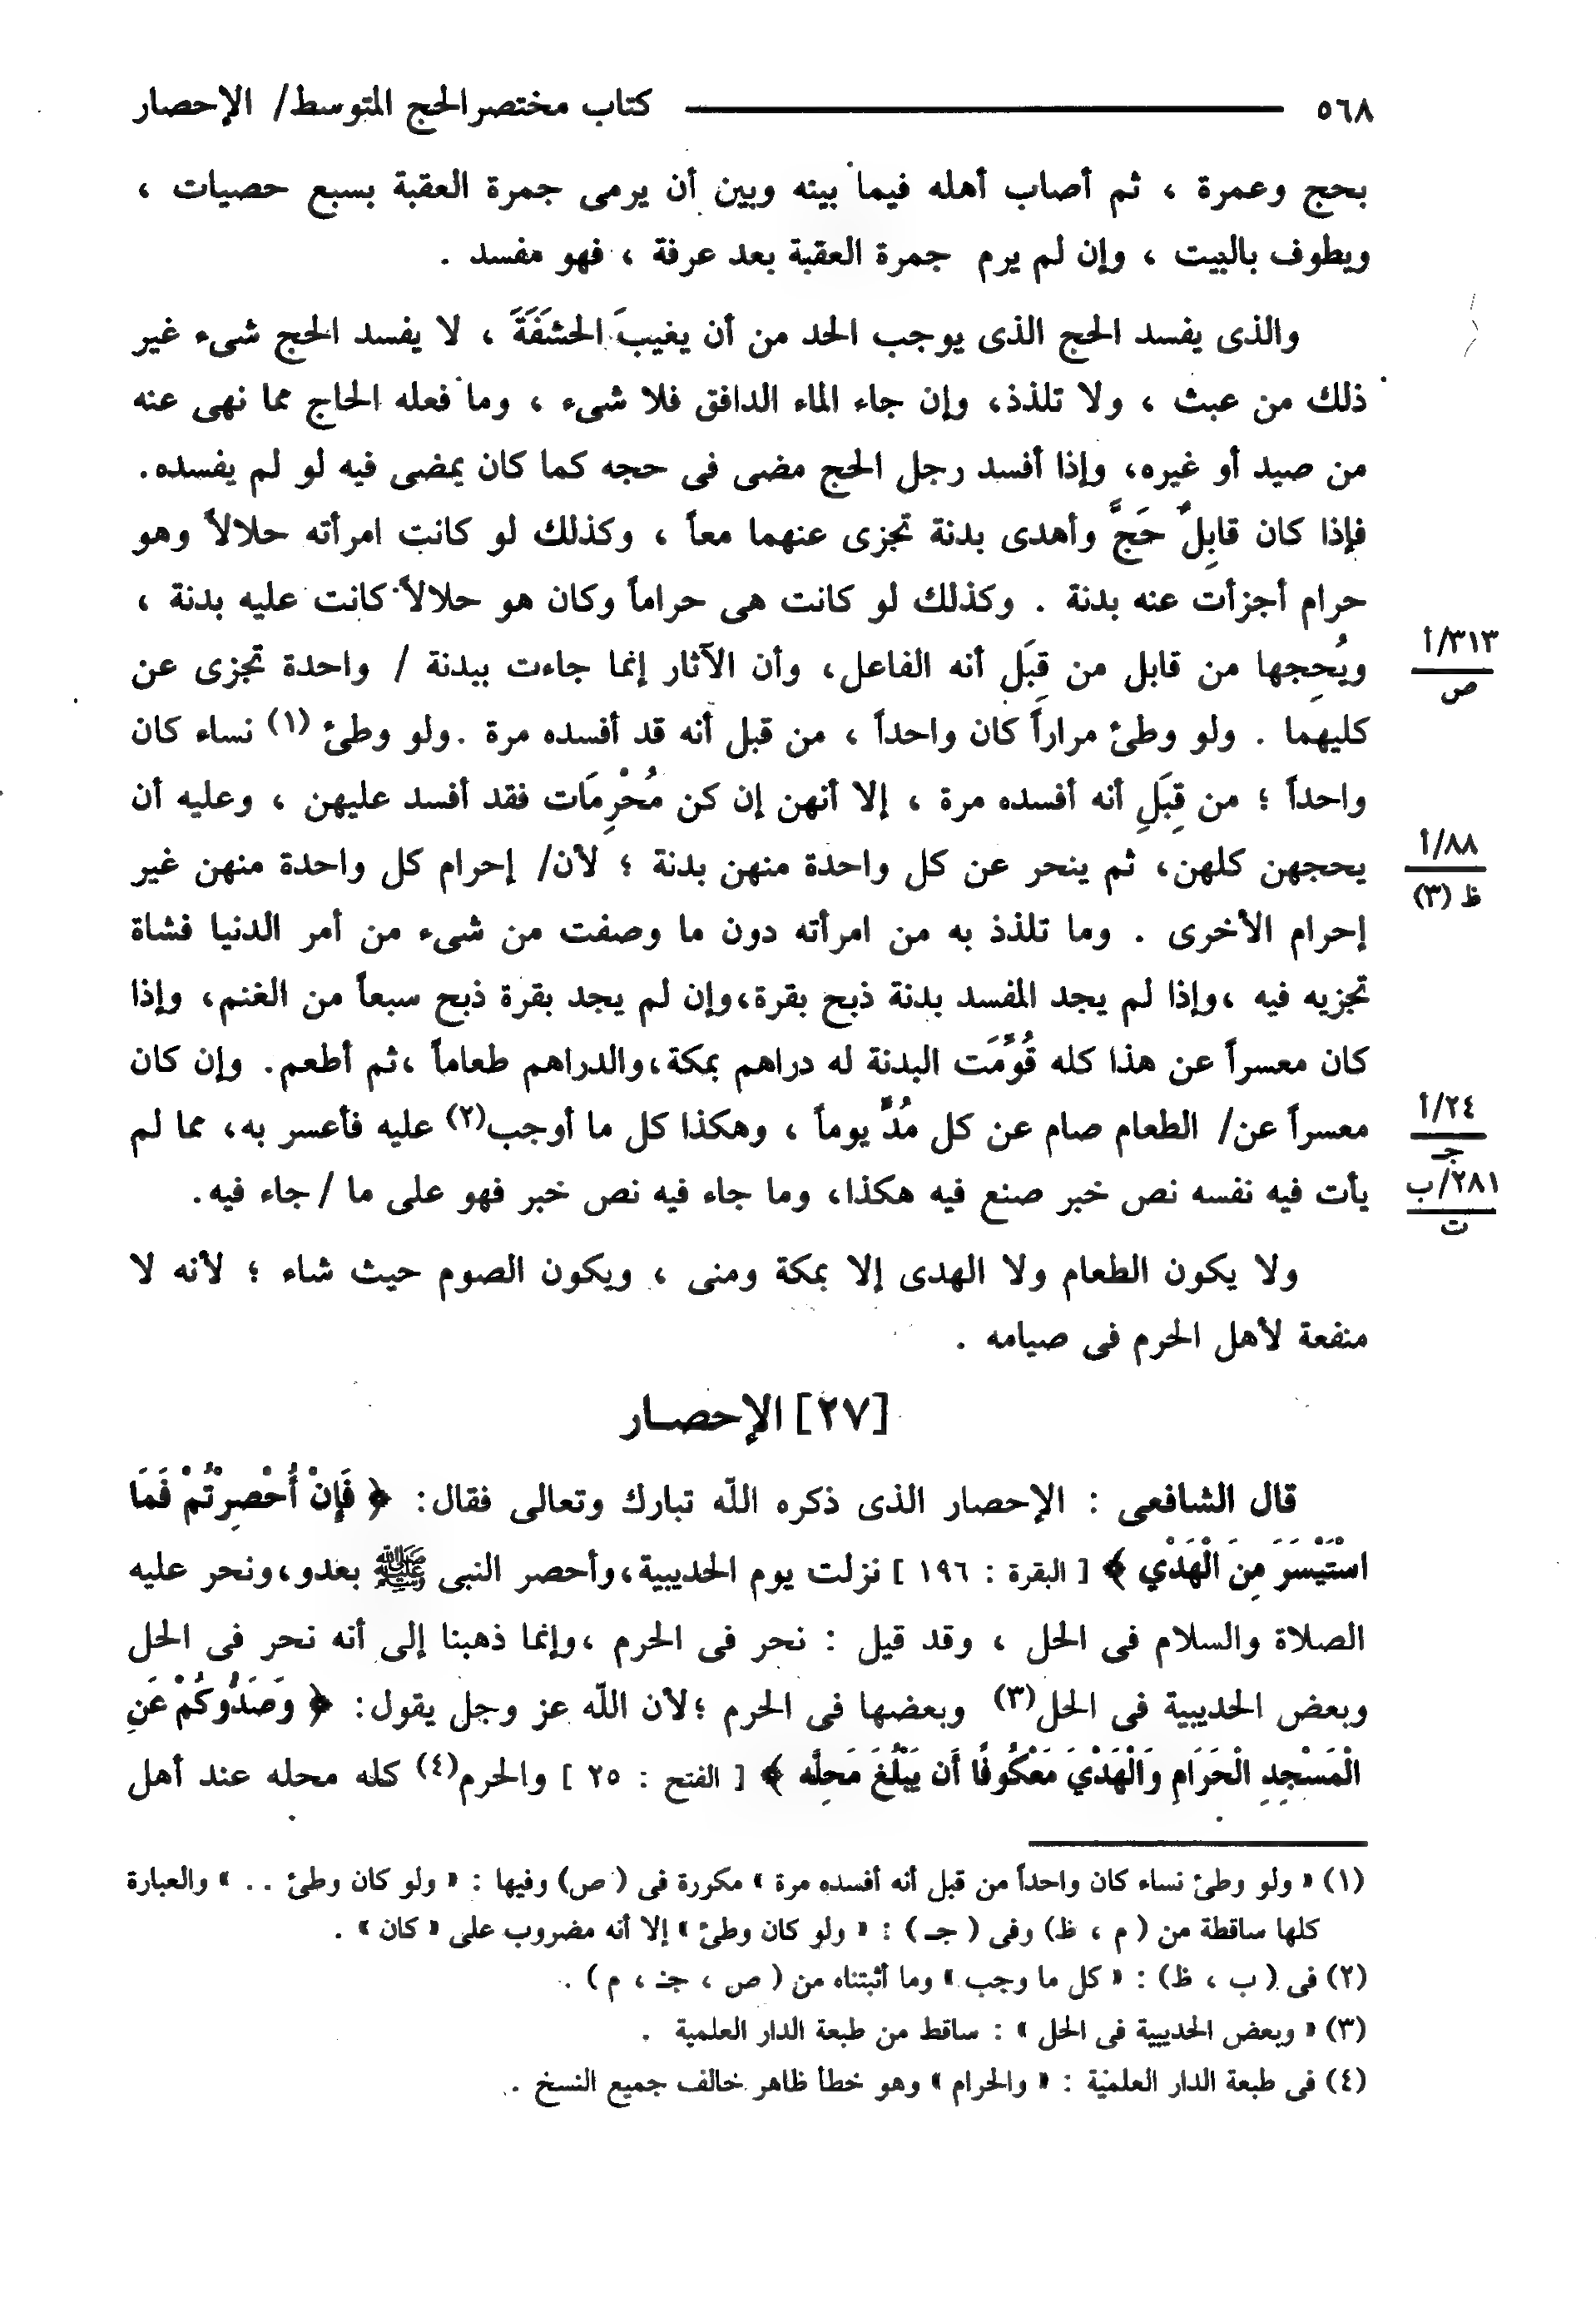 ٥٦٨ كتاب مختصر الحج المتوسط/ الإحصار
بحج وعمرة ، ثم أصاب أهله فيما بينه وبين أن يرمى جمرة العقبة بسبع حصيات ،
ويطوف بالبيت ، وإن لم يرم جمرة العقبة بعد عرفة ، فهو مفسد .
والذى يفسد الحج الذى يوجب الحد من أن يغيبَ الحشَفَةَ ، لا يفسد الحج شىء غير
ذلك من عبث ، ولا تلذذ، وإن جاء الماء الدافق فلا شىء ، وما فعله الحاج مما نهى عنه
من صيد أو غيره، وإذا أفسد رجل الحج مضى فى حجه كما كان يمضى فيه لو لم يفسده.
فإذا كان قابِلٌ حَجَّ وأهدى بدنة تجزى عنهما معاً ، وكذلك لو كانت امرأته حلالاً وهو
حرام أجزأت عنه بدنة . وكذلك لو كانت هى حراماً وكان هو حلالاً كانت عليه بدنة ،
ويُحِجها من قابل من قِبَلِ أنه الفاعل، وأن الآثار إنما جاءت ببدنة / واحدة تجزى عن
٣١٣/أ
ص
كليهما . ولو وطئ مراراً كان واحداً ، من قبل أنه قد أفسده مرة .ولو وطئ (١) نساء كان
واحداً ؛ من قِبَلِ أنه أفسده مرة ، إلا أنهن إن كن مُحْرِمَات فقد أفسد عليهن ، وعليه أن
يحجهن كلهن، ثم ينحر عن كل واحدة منهن بدنة ؛ لأن/ إحرام كل واحدة منهن غير
٨٨/أ
ظ (٣)
إحرام الأخرى . وما تلذذ به من امرأته دون ما وصفت من شىء من أمر الدنيا فشاة
تجزيه فيه ،وإذا لم يجد المفسد بدنة ذبح بقرة،وإن لم يجد بقرة ذبح سبعاً من الغنم، وإذا
كان معسراً عن هذا كله قُوِّمَت البدنة له دراهم بمكة،والدراهم طعاماً ،ثم أطعم. وإن كان
معسراً عن/ الطعام صام عن كل مُدٍّ يوماً ، وهكذا كل ما أوجب(٢) عليه فأعسر به، مما لم
٢٤/أ
جـ
يأت فيه نفسه نص خبر صنع فيه هكذا، وما جاء فيه نص خبر فهو على ما / جاء فيه.
٢٨١/ب
ت
ولا يكون الطعام ولا الهدى إلا بمكة ومنى ، ويكون الصوم حيث شاء ؛ لأنه لا
منفعة لأهل الحرم فى صيامه .
[٢٧] الإحصـار
قال الشافعى : الإحصار الذى ذكره اللّه تبارك وتعالى فقال: ﴿ فَإِنْ أُحْصِرْتُمْ فَمَا
اسْتَيْسَرَ مِنَ الْهَدْيِ ﴾ [ البقرة : ١٩٦ ] نزلت يوم الحديبية،وأحصر النبى ﷺ بعدو،ونحر عليه
الصلاة والسلام فى الحل ، وقد قيل : نحر فى الحرم ،وإنما ذهبنا إلى أنه نحر فى الحل
وبعض الحديبية فى الحل(٣) وبعضها فى الحرم ؛لأن اللّه عز وجل يقول: ﴿ وَصَدُّوكُمْ عَنِ
الْمَسْجِدِ الْحَرَامِ وَالْهَدْيَ مَعْكُوفًا أَن يَبْلُغَ مَحِلَّه ﴾ [ الفتح : ٢٥ ] والحرم(٤) كله محله عند أهل
(١) « ولو وطئ نساء كان واحداً من قبل أنه أفسده مرة » مكررة فى ( ص) وفيها : « ولو كان وطئ . . » والعبارة
كلها ساقطة من ( م ، ظ) وفى ( جـ ) : « ولو كان وطئ » إلا أنه مضروب على « كان » .
(٢) فى ( ب ، ظ) : « كل ما وجب » وما أثبتناه من ( ص ، جـ ، م ) .
(٣) « وبعض الحديبية فى الحل » : ساقط من طبعة الدار العلمية .
(٤) فى طبعة الدار العلمية : « والحرام » وهو خطأ ظاهر خالف جميع النسخ .